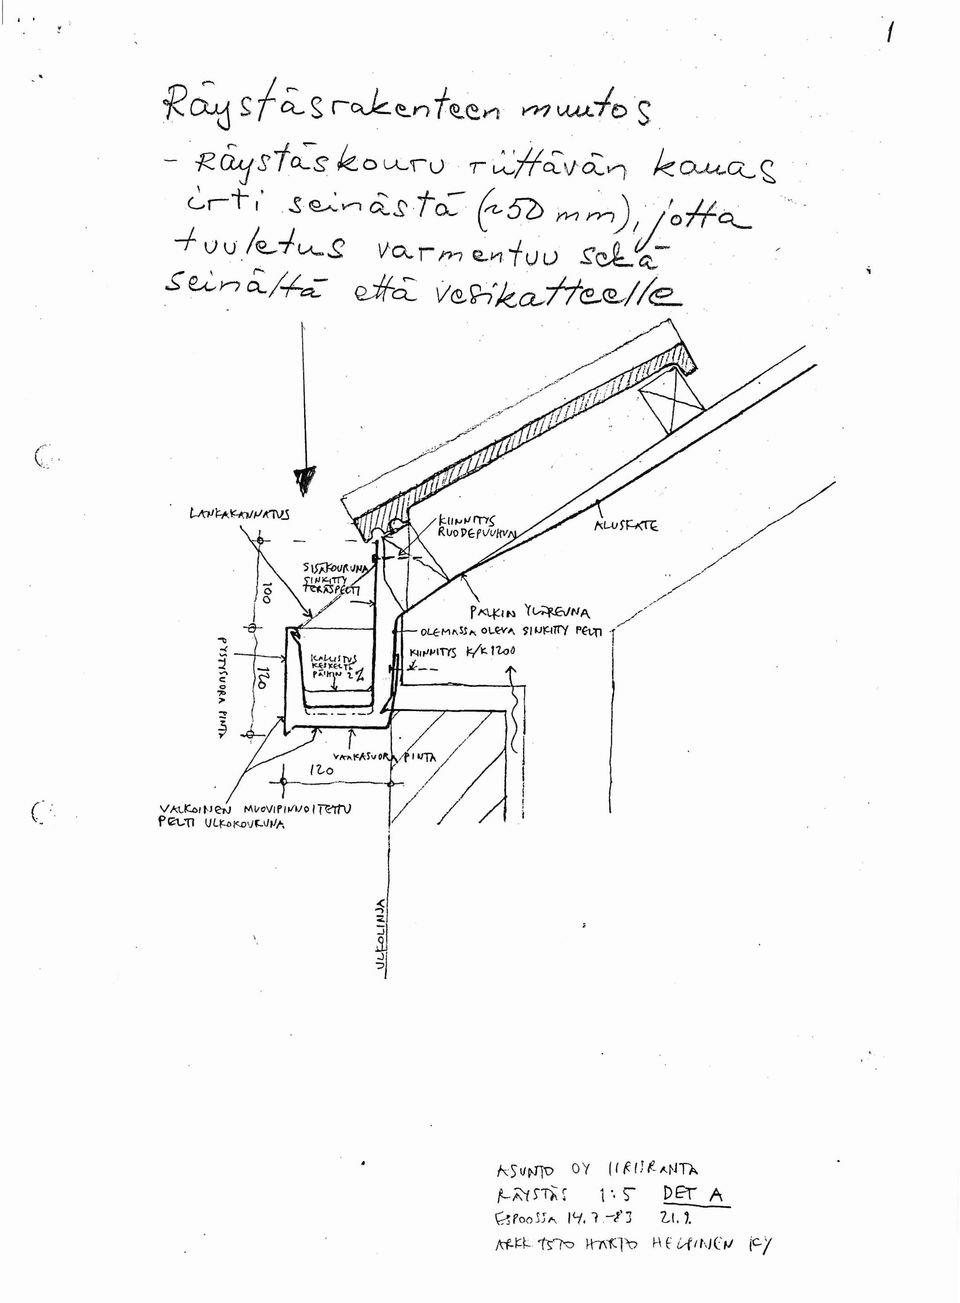 1
Räystäsrakenteen muutos
- Räystäskouru riittävän kauas
irti seinästä (~50 mm), jotta
tuuletus varmentuu sekä
seinältä että vesikatteelle
LANKAKANNATUS
KIINNITYS
RUODEPUUHUN
ALUSKATE
SISÄKOURUNA
SINKITTY
TERÄSPELTI
100
PALKIN YLÄREUNA
OLEMASSA OLEVA SINKITTY PELTI
KIINNITYS K/K 1200
KALLISTUS
KESKELTÄ
PÄIHIN 2%
120
PYSTYSUORA PINTA
VAAKASUORA PINTA
120
VALKOINEN MUOVIPINNOITETTU
PELTI ULKOKOURUNA
ULKOLINJA
ASUNTO OY IIRIIRANTA
RÄYSTÄS 1:5 DET A
ESPOOSSA 14.7.-83 21.9.
ARKK TSTO HARTO HELPINEN KY